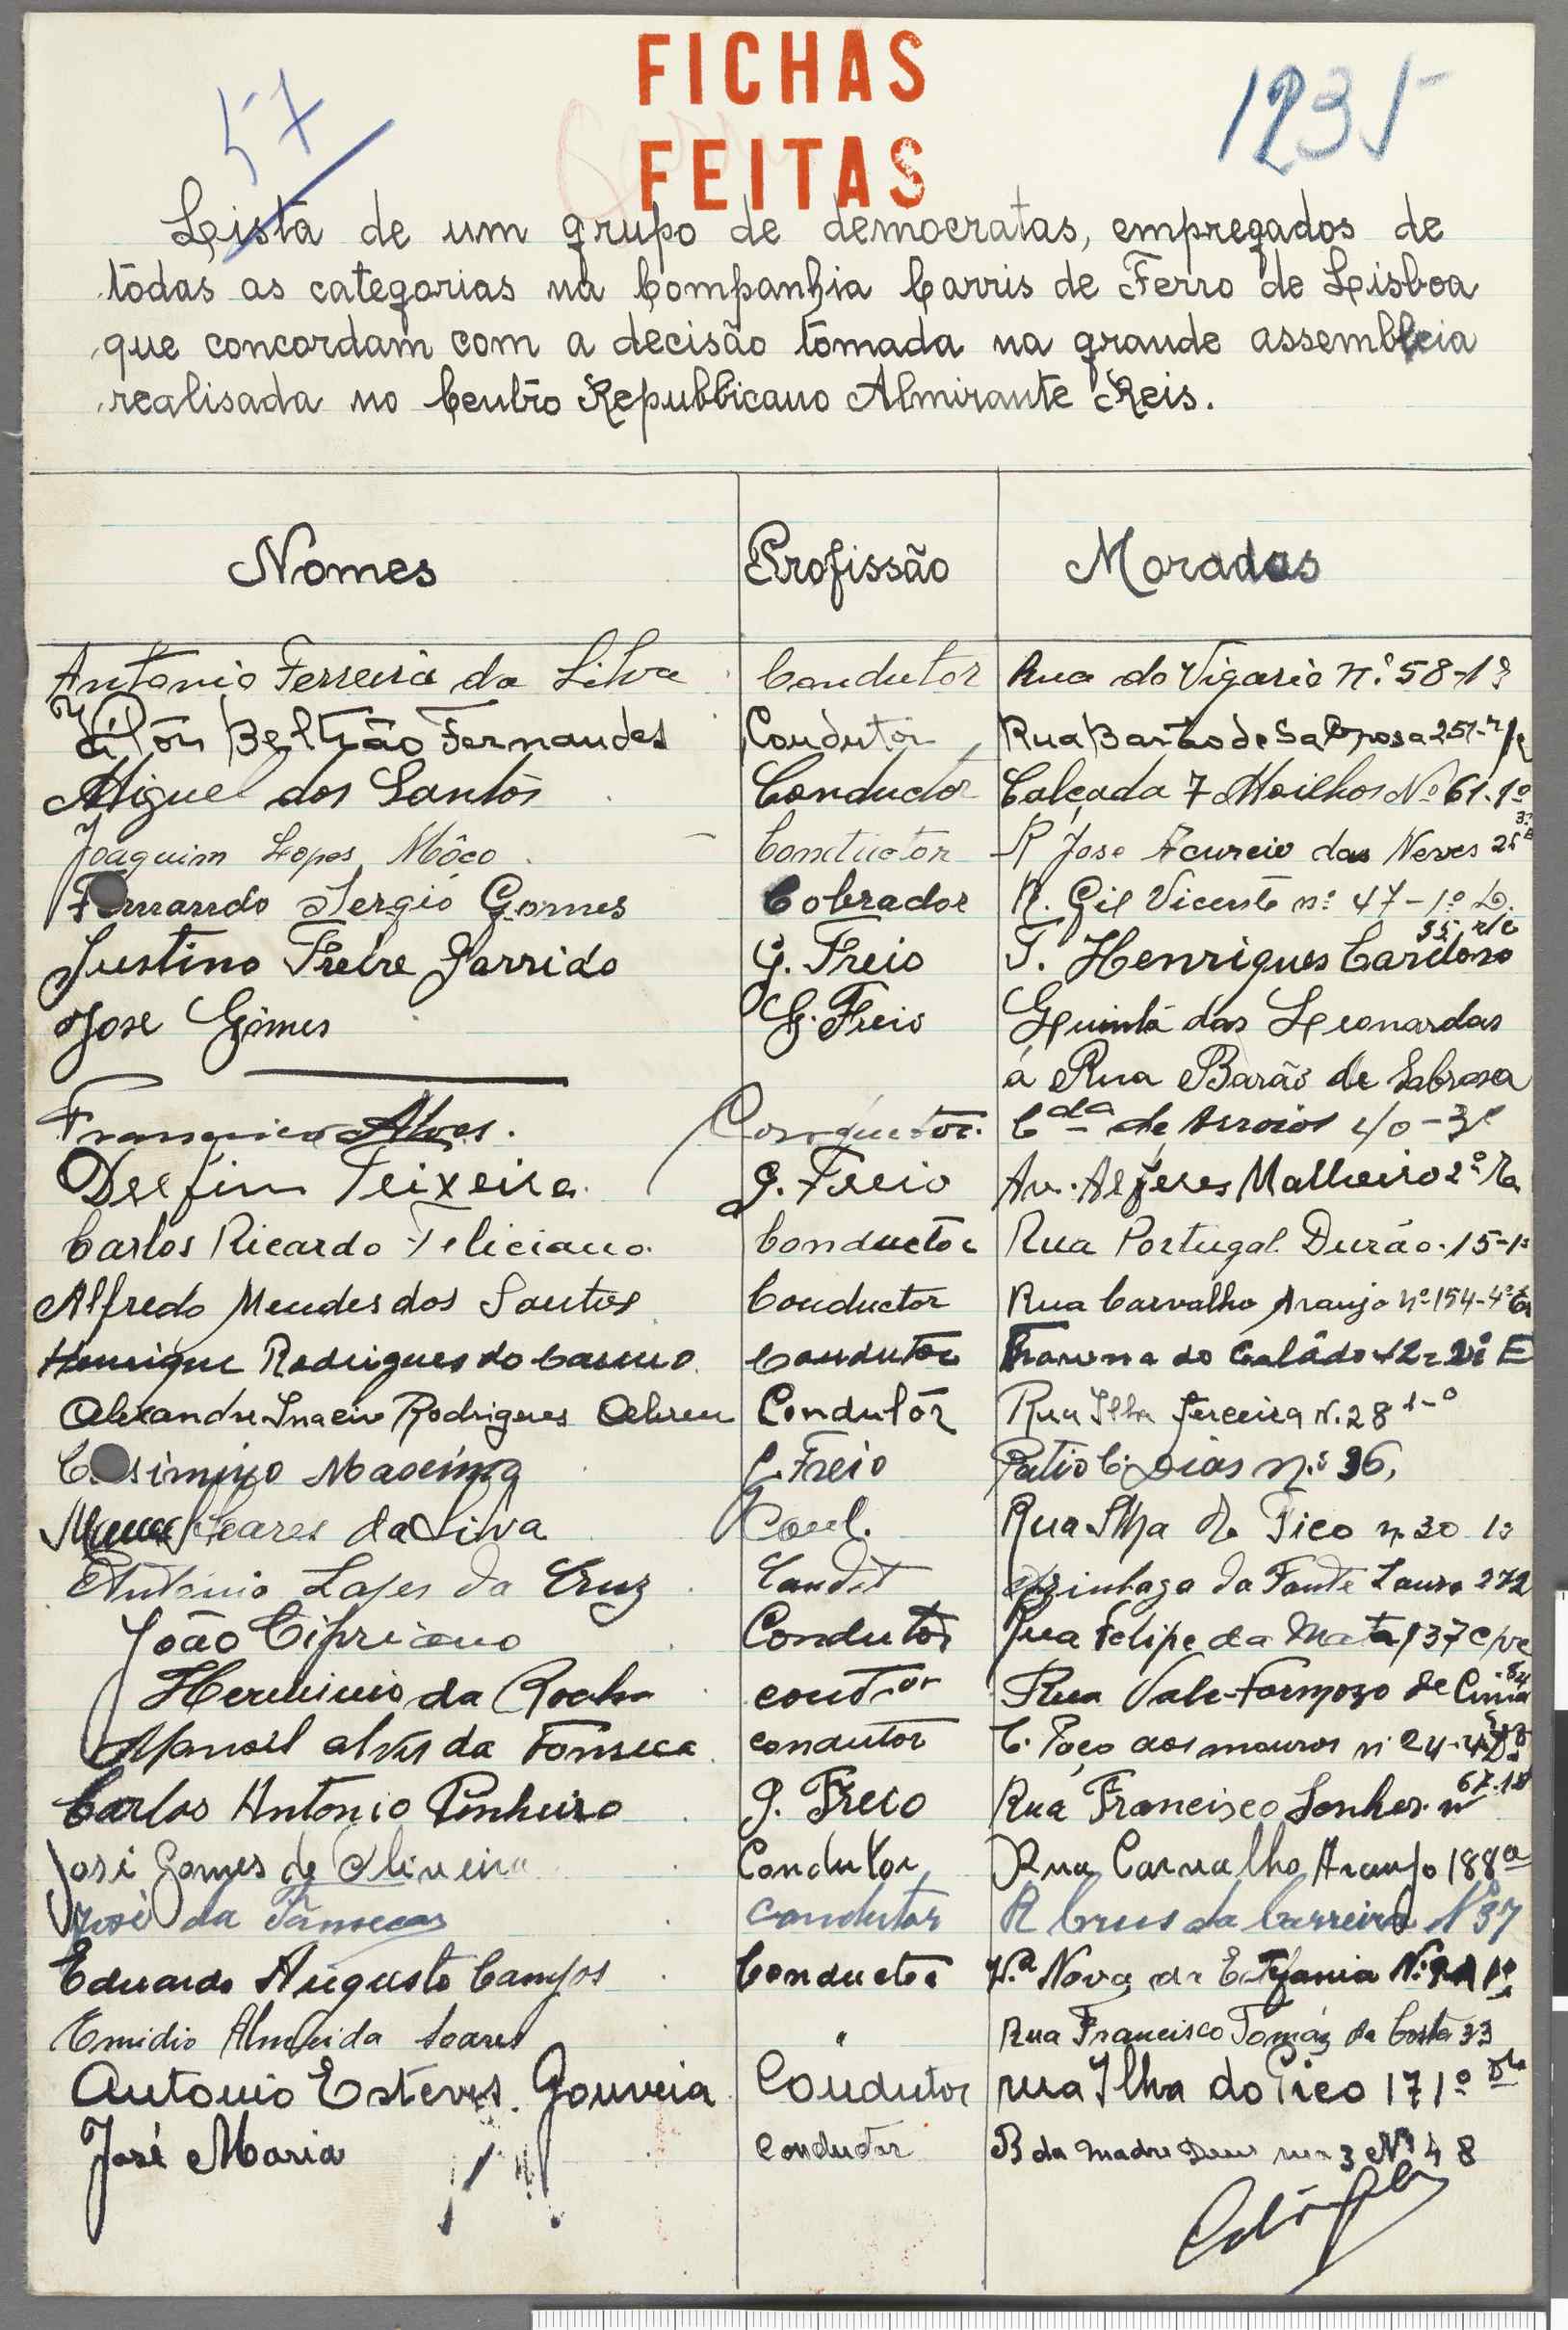 FICHAS
FEITAS
57
1235
Lista de um grupo de democratas, empregados de
tôdas as categorias na Companhia Carris de Ferro de Lisboa
que concordam com a decisão tomada na grande assembleia
realisada no Centro Republicano Almirante Reis.
Nomes Profissão Moradas
Antonio Ferreira da Silva Condutor Rua do Vigario n.º 58-1º
Beltrão Fernandes Condutor Rua Barão de Sabrosa 257-r/c
Miguel dos Santos Conductor Calçada 7 Moilhos Nº 61.1º
Joaquim Lopes Môco Conductor R José Acurcio das Neves 25
Fernando Sergio Gomes Cobrador R. Gil Vicente nº 47-1º D.
Justino Freire Garrido G. Freio T. Henriques Cardoso 35 r/c
Jose Gomes G. Freio Quinta das Leonardas
á Rua Barão de Sabrosa
Francisco Alves. Conductor. Cda de Arroios 40-3º
Delfim Teixeira. G. Freio Av. Alferes Malheiro 2º
Carlos Ricardo Feliciano. Conductor Rua Portugal Durão. 15-1º
Alfredo Mendes dos Santos Conductor Rua Carvalho Araujo nº 154-4º
Henrique Rodrigues do Carmo Condutor do E
Alexandre Inacio Rodrigues Abreu Condutôr Rua Ilha Terceira N.28 1-º
G. Freio Patio C. Dias n.º 36,
Soares da Silva Cond. Rua Ilha do Pico n 30 1º
Antonio Lajes da Cruz Condut Azinhaga da Fonte Louro 272
João Cipriano Condutor Rua Felipe da Mata 137 c/ve
Herminio da Rocha Rua Vale-Formozo de Cima 84
Manoel alves da Fonseca condutor C. Poço dos mouros nº 24
Carlos Antonio Pinheiro G. Freio Rua Francisco Sanhes nº 67-1º
José Gomes de Oliveira Condutor Rua Carvalho Araujo 188ª
José da Fonseca condutor R Crus da Carreira Nº 37
Eduardo Augusto Campos Conductor Nova da Estefania
Emidio Almeida Soares " Rua Francisco Tomáz da Costa 33
Antonio Esteves Gouveia Condutor rua Ilha do Pico 17 1º Dto
José Maria condutor B da Madre Deus rua 3 Nº 48